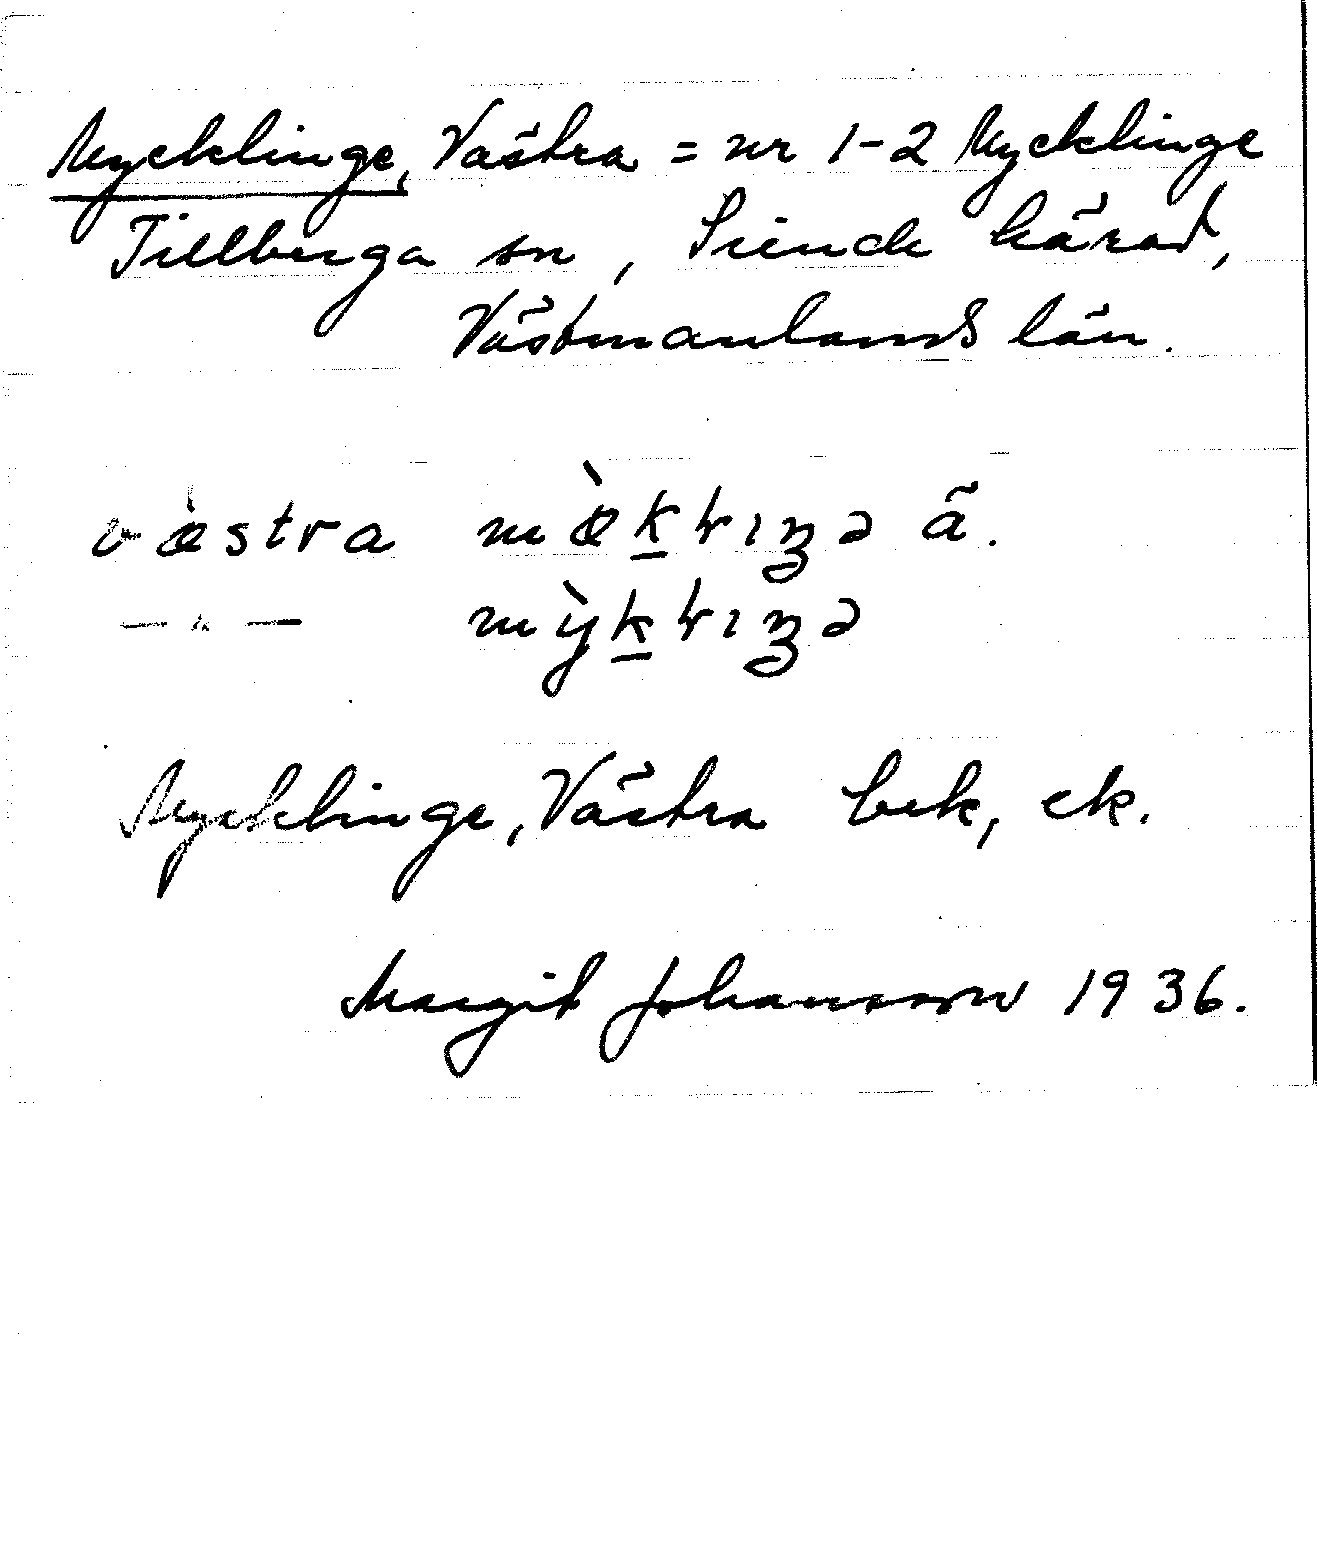 Mycklinge, Västra = nr 1-2 Mycklinge
Tillberga sn, Siende härad,
Västmanlands län.
væ̀stra mæ̀ḵlıŋə ä.
— " — mỳḵlıŋə
Mycklinge, Västra bek, ek.
Margit Johansson 1936.